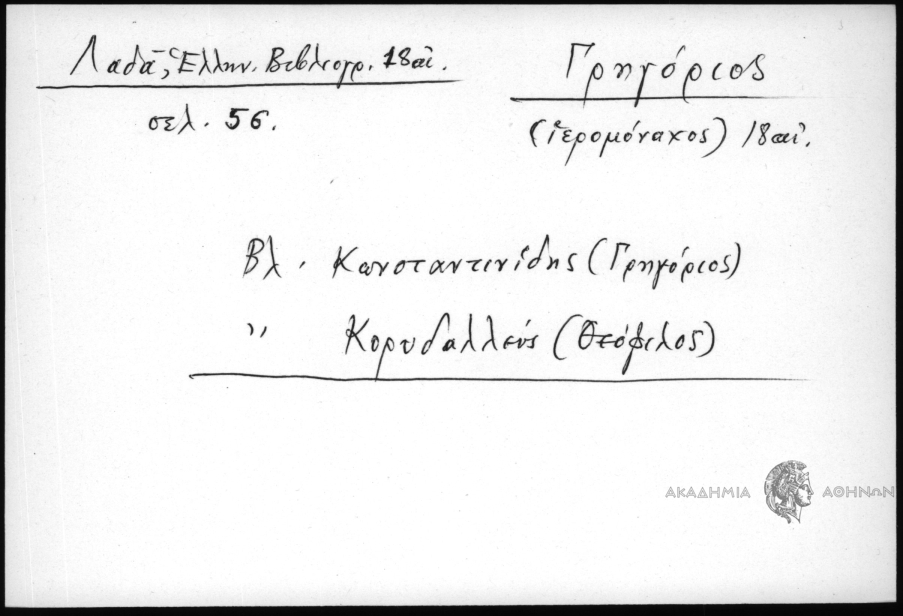 Λαδᾶ, Ἑλλην. Βιβλιογρ. 18 αἰ.
σελ. 56.
Γρηγόριος
(ἱερομόναχος) 18 αἰ.
Βλ. Κωνσταντινίδης (Γρηγόριος)
,, Κορυδαλλεύς (Θεόφιλος)
ΑΚΑΔΗΜΙΑ ΑΘΗΝΩΝ